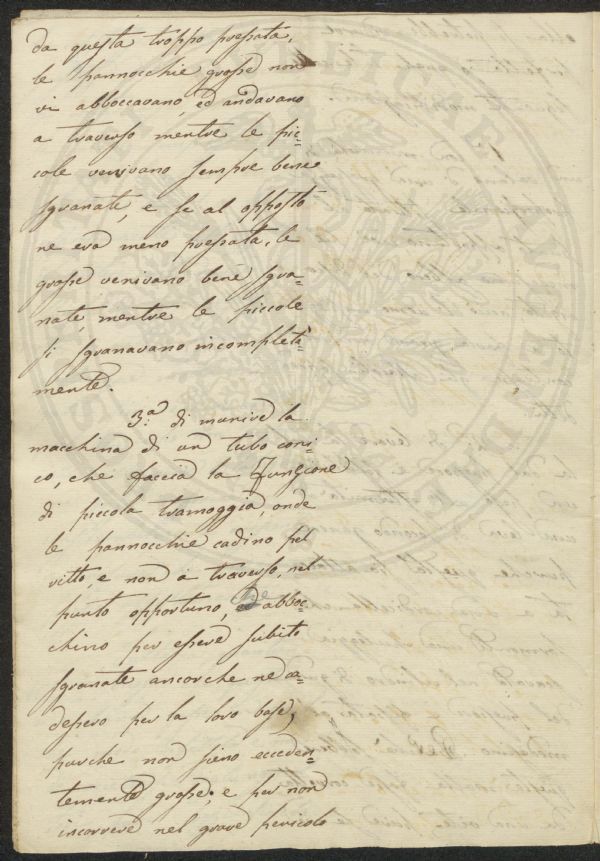 da questa troppo pressata,
le pannocchie grosse non
vi abboccavano, ed andavano
a traverso mentre le pic=
cole venivano sempre bene
sgranate, e se al opposto
ne era meno pressata, le
grosse venivano bene sgra=
nate, mentre le piccole
si sgranavano incompleta=
mente.
3.a di munire la
macchina di un tubo coni=
co, che faccia la funzione
di piccola tramoggia, onde
le pannocchie cadino pel
ritto, e non a traverso, nel
punto opportuno, ed abboc=
chino per essere subito
sgranate ancorche ne ca=
dessero per la loro base,
purche non sieno ecceden=
temente grosse; e per non
incorrere nel grave pericolo